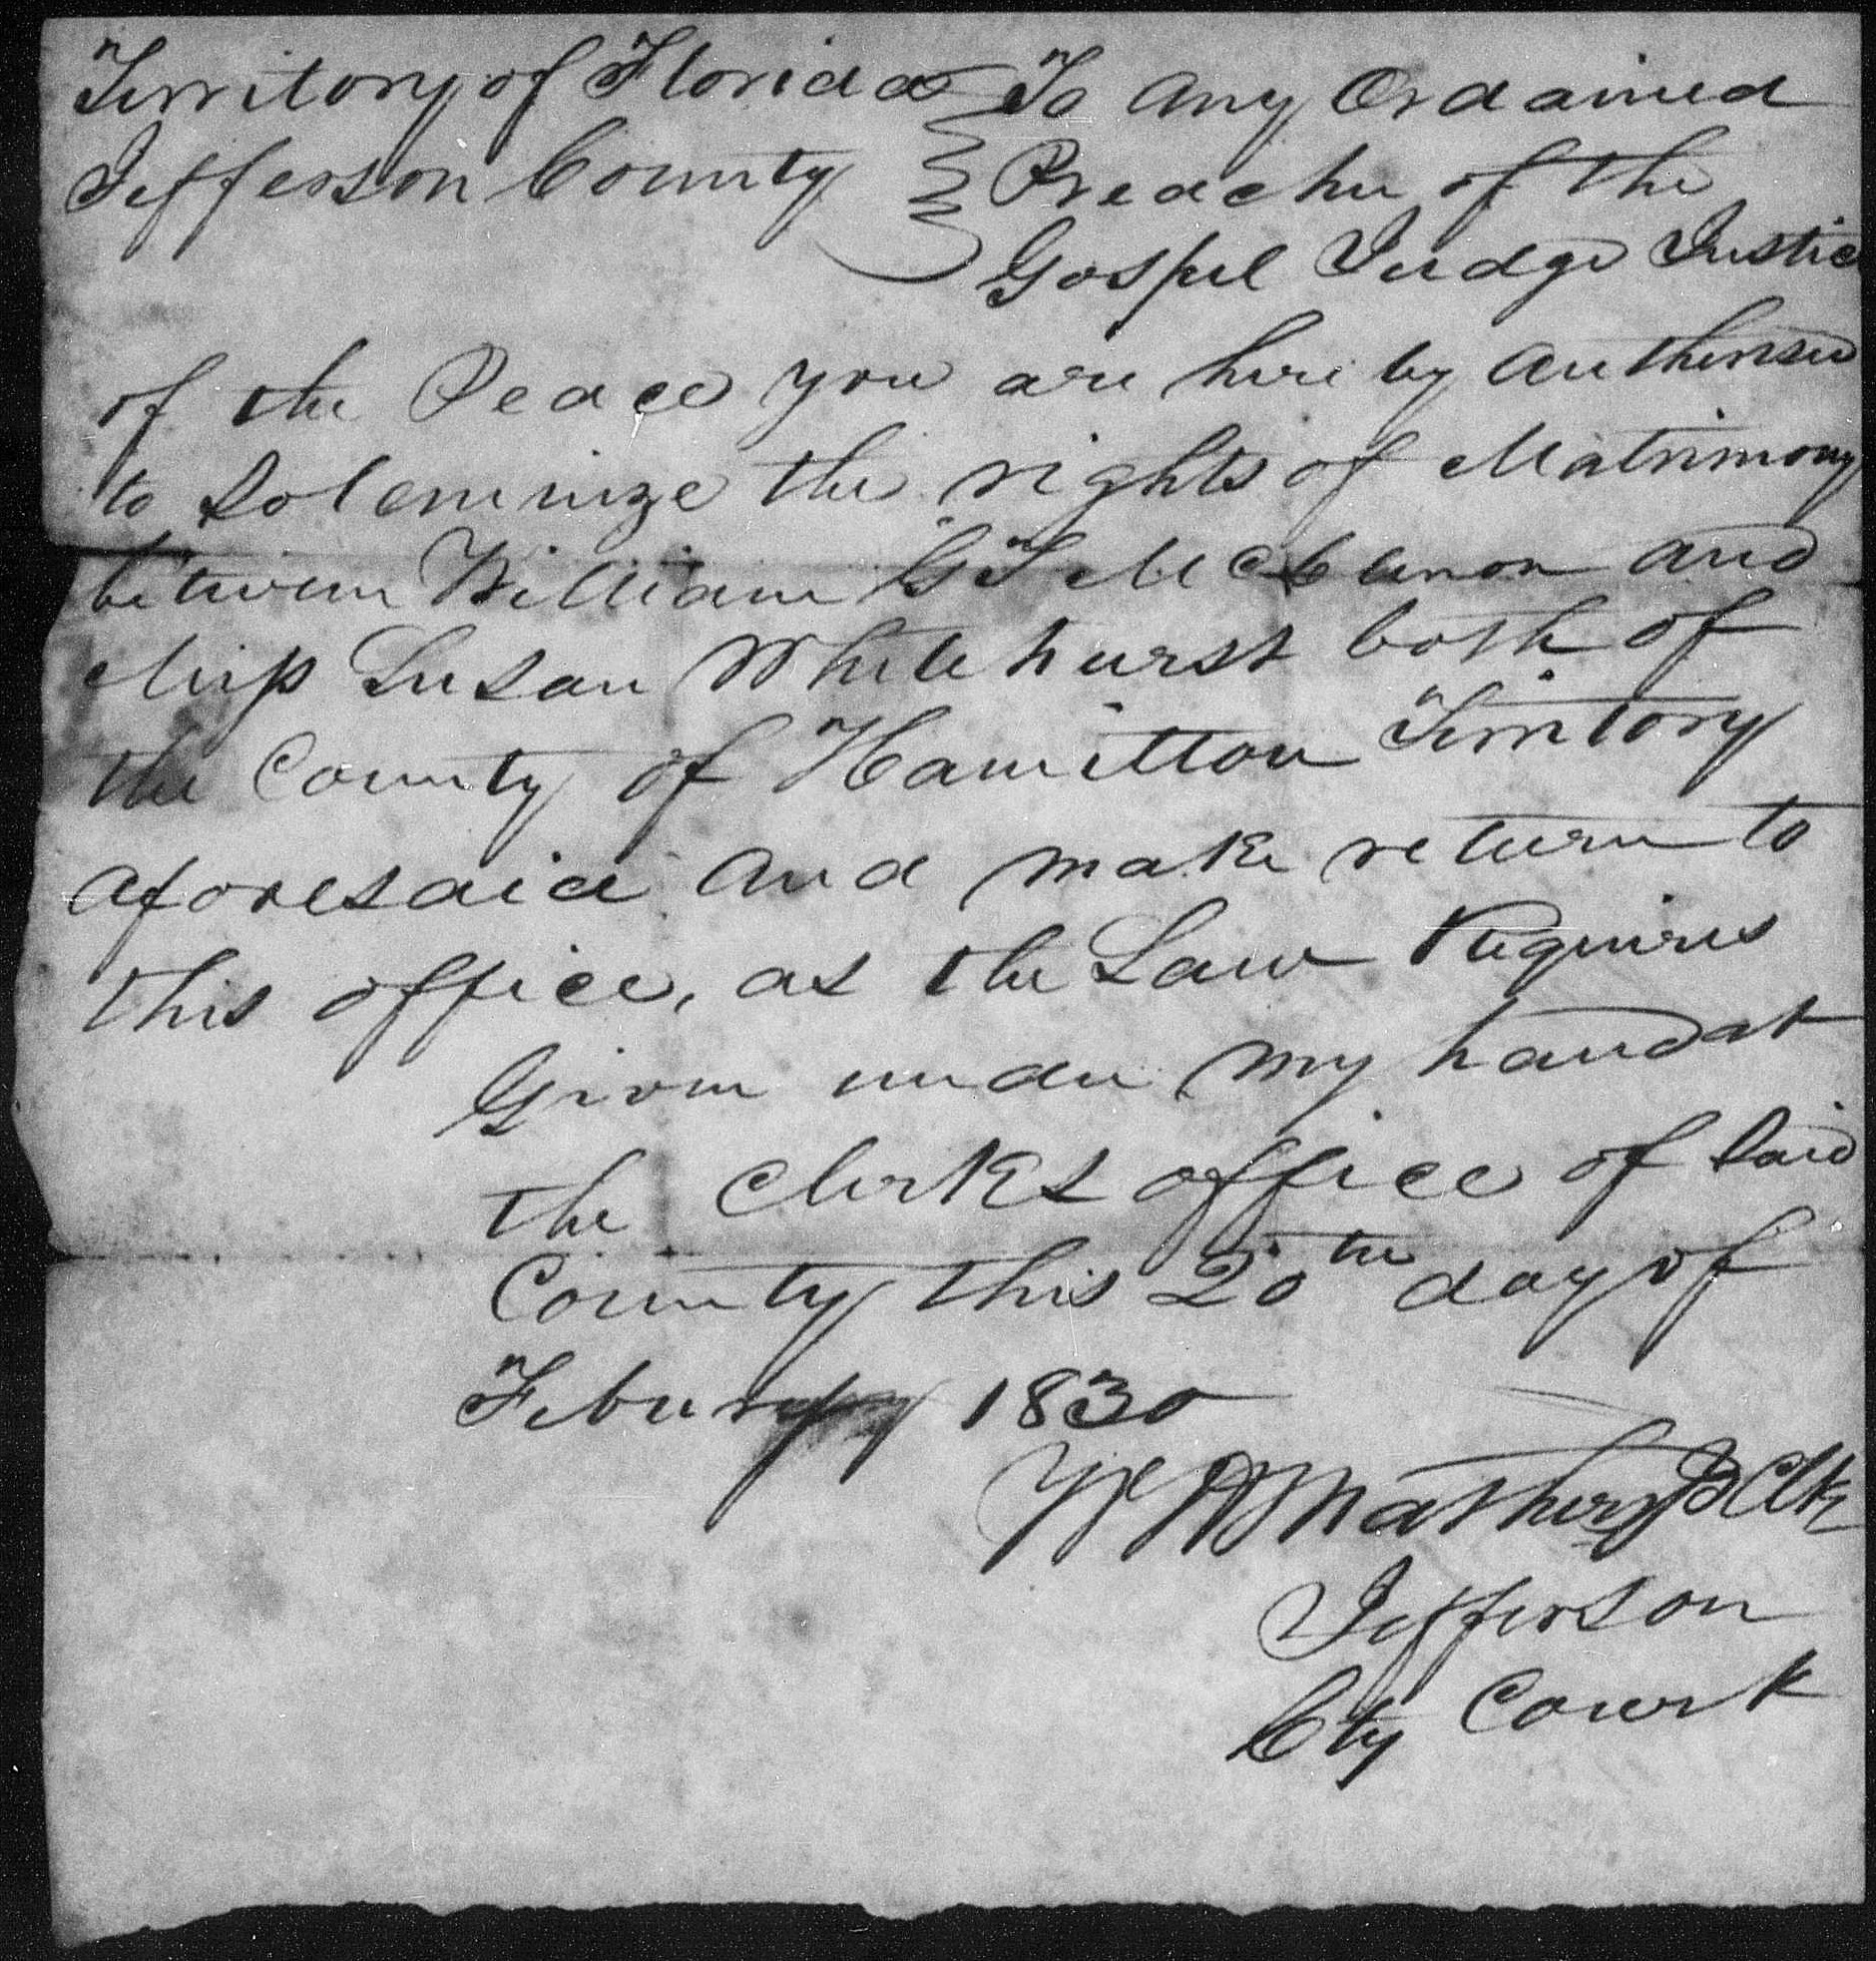 Territory of Florida To any Ordained
Jefferson County Preacher of the
Gospel Judge Justice
of the Peace you are here by Autherised
to Solemnize the rights of Matrimony
between William G T and
Miss Susan Whitehurst both of
the County of Hamilton Territory
aforesaid and make return to
this office, as the Law Requires
Given under my hand at
the Clerks office of Said
County this 20th day of
1830
Mathers D Clk
Jefferson
Cty Court